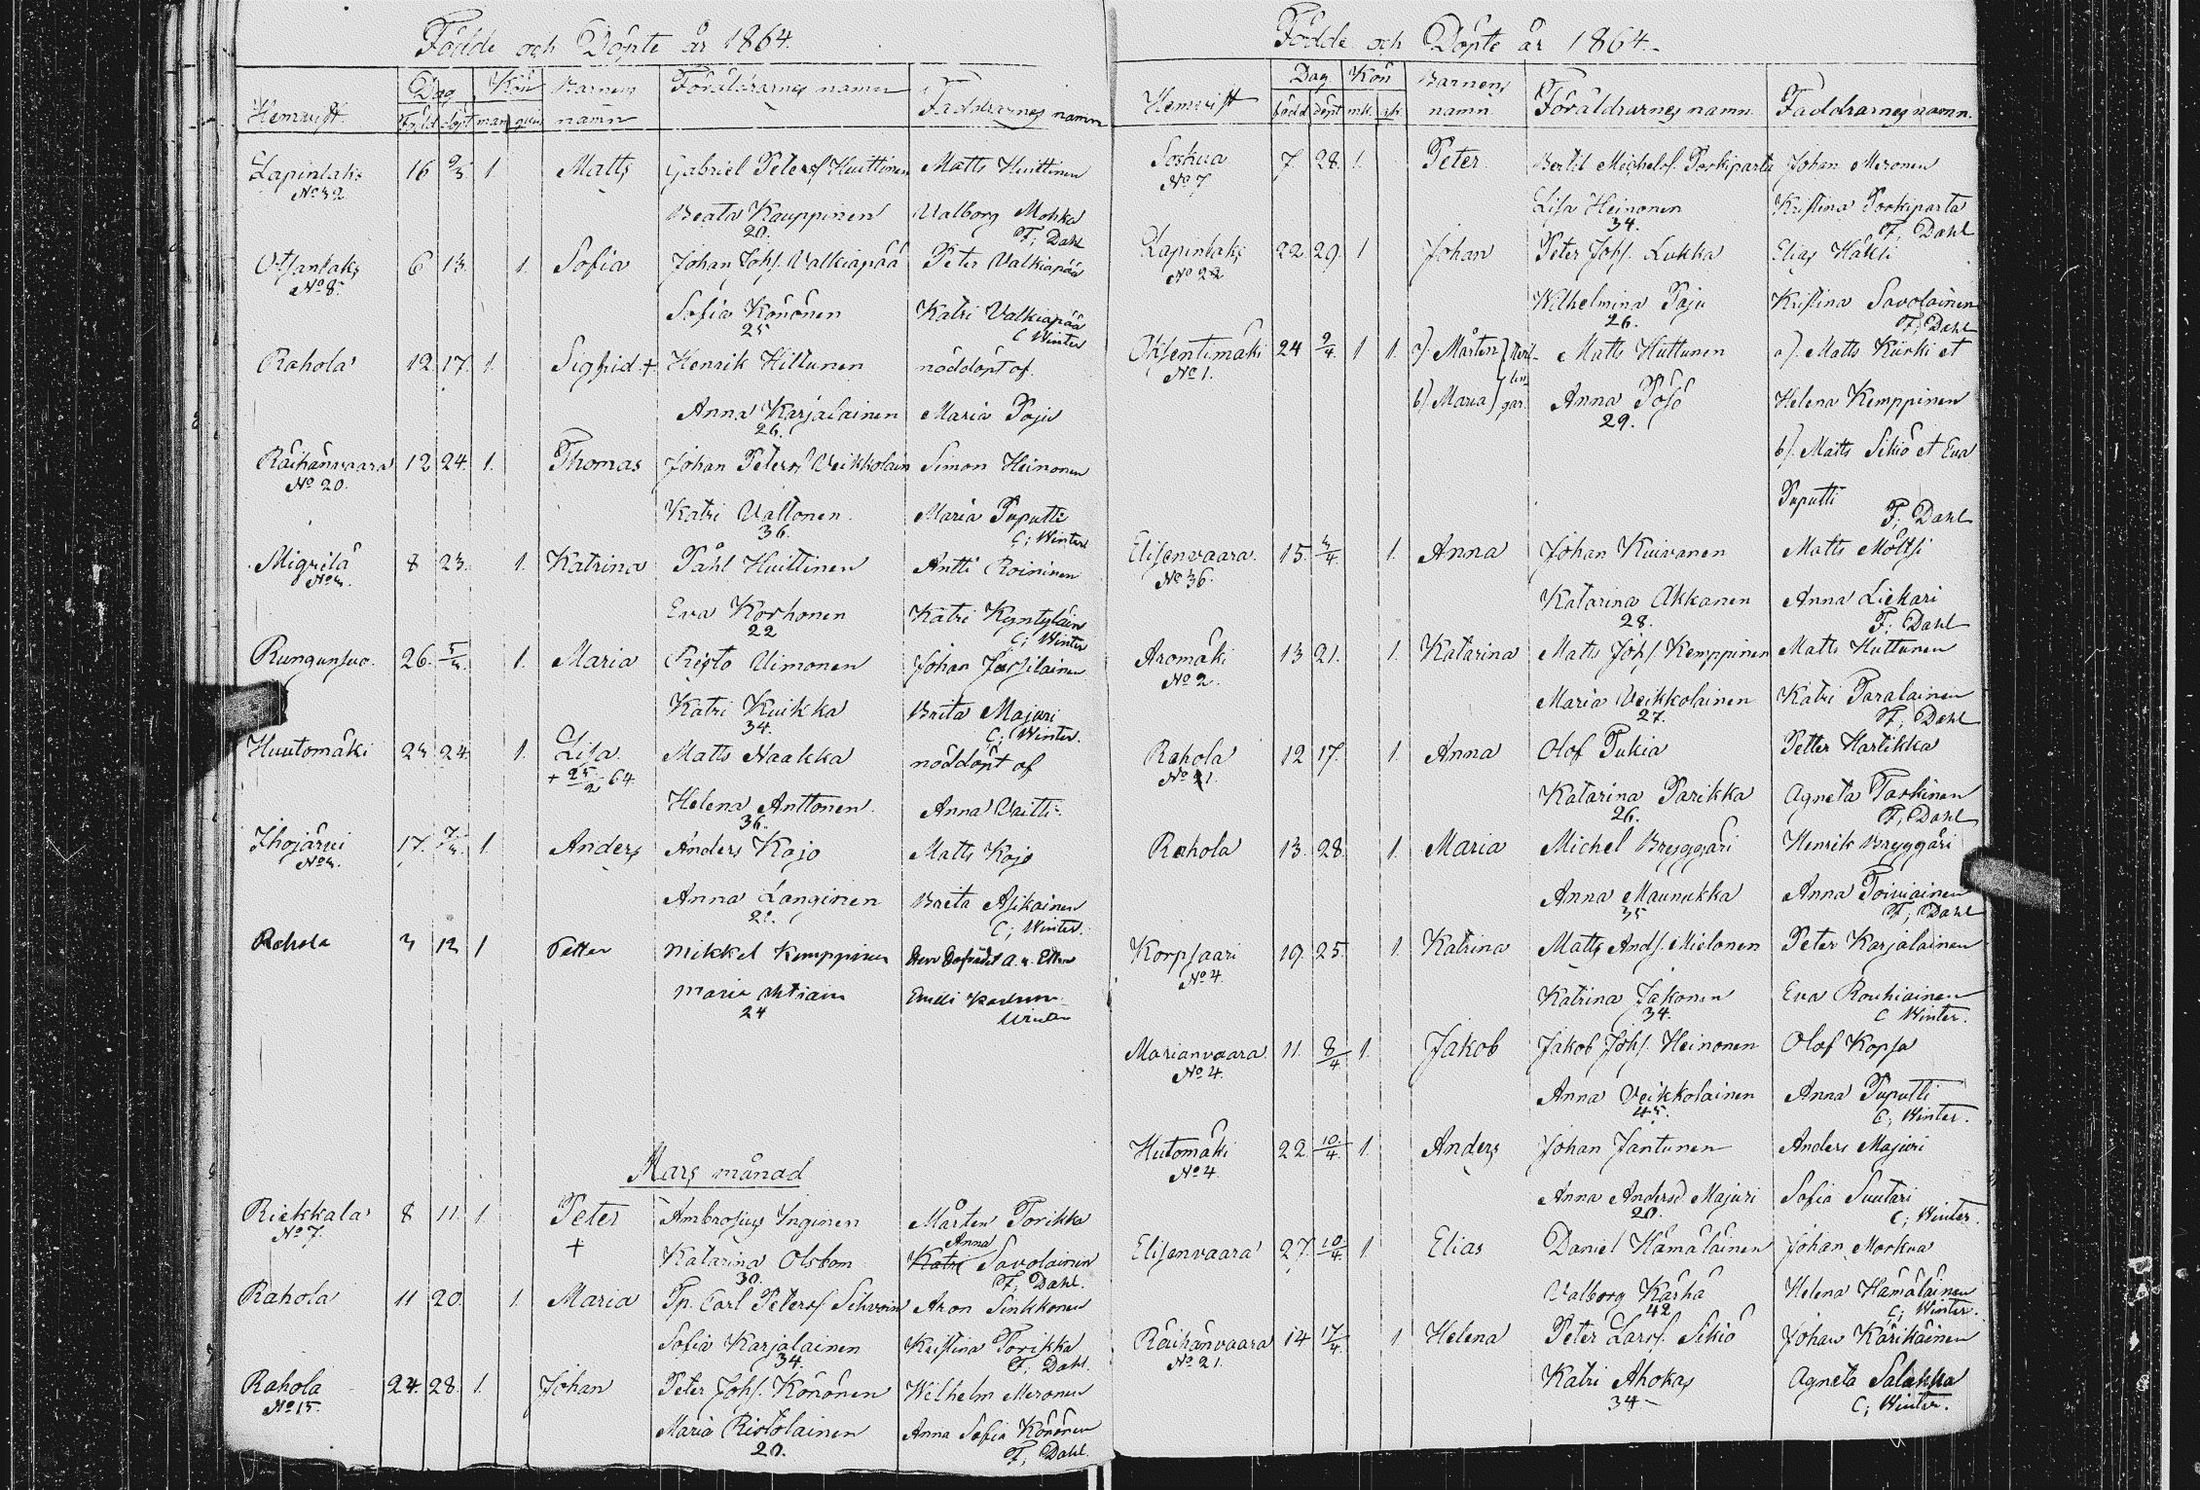 Födde och Döpte år 1864.
Hemvist Dag Kön Barnens namn Föräldrarnes namn Faddrarnes namn
född döpt man qvin
Lapinlaks 16 1. Matts Gabriel Petersf Huittinen Matts Huittinen
No 32 Beata Kauppinen Valborg Mohka
20. F; Dahl
Otsanlaks 6 13. 1. Sofia Johan Johs. Valkiapää Peter Valkiapää
No 8. Sofia Könönen Katri Valkiapää
25 C Winter
Rahola 12. 17. 1. Sigfrid + Henrik Hiltunen nöddöpt af
Anna Karjalainen Maria Poju
26.
Räihänvaara 12 24. 1. Thomas Johan Petersf Veikkolain Simon Heinonen
No 20. Katri Valtonen Maria Puputti
36. C; Winter
Migrilä 8 23. 1. Katrina Påhl Huittinen Antti Roininen
Eva Korhonen Katri Kyntyläin
22 C; Winter
Rungunsuo. 26. 1. Maria Risto Uimonen Johan
Katri Kuikka Brita Majuri
34. C; Winter.
Huutomäki 23 24. 1. Lisa Matts Naakka nöddöpt af
+ 25/2 64. Helena Anttonen Anna Vaitti
36.
Ihojärvi 17. 1. Anders Anders Kojo Matts Kojo
Anna Langinen Brita Asikainen
C; Winter.
Rahola 3 13 1 Petter Mikkel Kemppinen
Maria
24 Winter
Mars månad
Riekkala 8 11. 1 Peter Ambrosius Inginen Mårten Torikka
No 7. + Katarina Olsbom Anna Katri Savolainen
30. F; Dahl.
Rahola 11 20. 1. Maria Sp. Carl Petersf Silvoin Aron Sinkkonen
Sofia Karjalainen Kristina Torikka
34. F. Dahl.
Rahola 24. 28. 1. Johan Peter Johs. Könönen Wilhelm Meronen
No 15. Maria Ristolainen Anna Sofia Könönen
20. F; Dahl.
Födde och Döpte år 1864.
Hemvist Dag Kön Barnens namn Föräldrarnes namn Faddrarnes namn.
född döpt mk. qk.
Soskua 7 28. 1. Peter Bertil Michelsf. Porkiparta Johan Meronen
No 7 Lisa Heinonen Kristina Porkiparta
34. F, Dahl
Lapinlaks 22. 29. 1 Johan Peter Johs. Lukka Elias Häkli
No 22 Wilhelmina Poju Kristina Savolainen
26. F; Dahl
24 9/4. 1 1. a). Mårten Matts Huttunen a). Matts Kurki et
No 1. b) Maria Anna Pösö Helena Kemppinen
29.
b). Matts Sikiö et Eva
Puputti
F; Dahl
Elisenvaara. 15. 3/4. 1. Anna Johan Kuivanen Matts Möltsi
No 36. Katarina Akkanen Anna Liekari
28. F: Dahl
Aromäki 13 21. 1. Katarina Matts Johs. Kemppinen Matts Huttunen
No 2. Maria Veikkolainen Katri Paralainen
27. F; Dahl
Rahola 12 17. 1. Anna Olof Pukia Petter Hartikka
Katarina Parikka Agneta Paskinen
26. F; Dahl
Rahola 13. 28. 1. Maria Michel Bryggäri Henrik Bryggäri
Anna Maunukka Anna Toiviainen
35 F; Dahl
Korpsaari 19. 25. 1. Katrina Matts Ands. Mielonen Peter Karjalainen
No 4 Katrina Jakonen Eva Rouhiainen
34. C Winter.
Marianvaara. 11. 8/4 1. Jakob Jakob Johs. Heinonen Olof Kopsa
No 4. Anna Veikkolainen Anna Puputti
45. C; Winter.
Hutomäki 22. 10/4. 1. Anders Johan Jantunen Anders Majuri
No 4 Anna Andersd Majuri Sofia Suutari
20. C; Winter.
Elisenvaara 27. 10/4. 1. Elias Daniel Hämäläinen Johan Morkua
Valborg Kärhä Helena Hämäläinen
42 C; Winter.
Räihänvaara 14 17/4. 1 Helena Peter Larsf. Sikiö Johan Kärikäinen
No 21. Katri Ahokas Agneta Salakka
34 C; Winter.